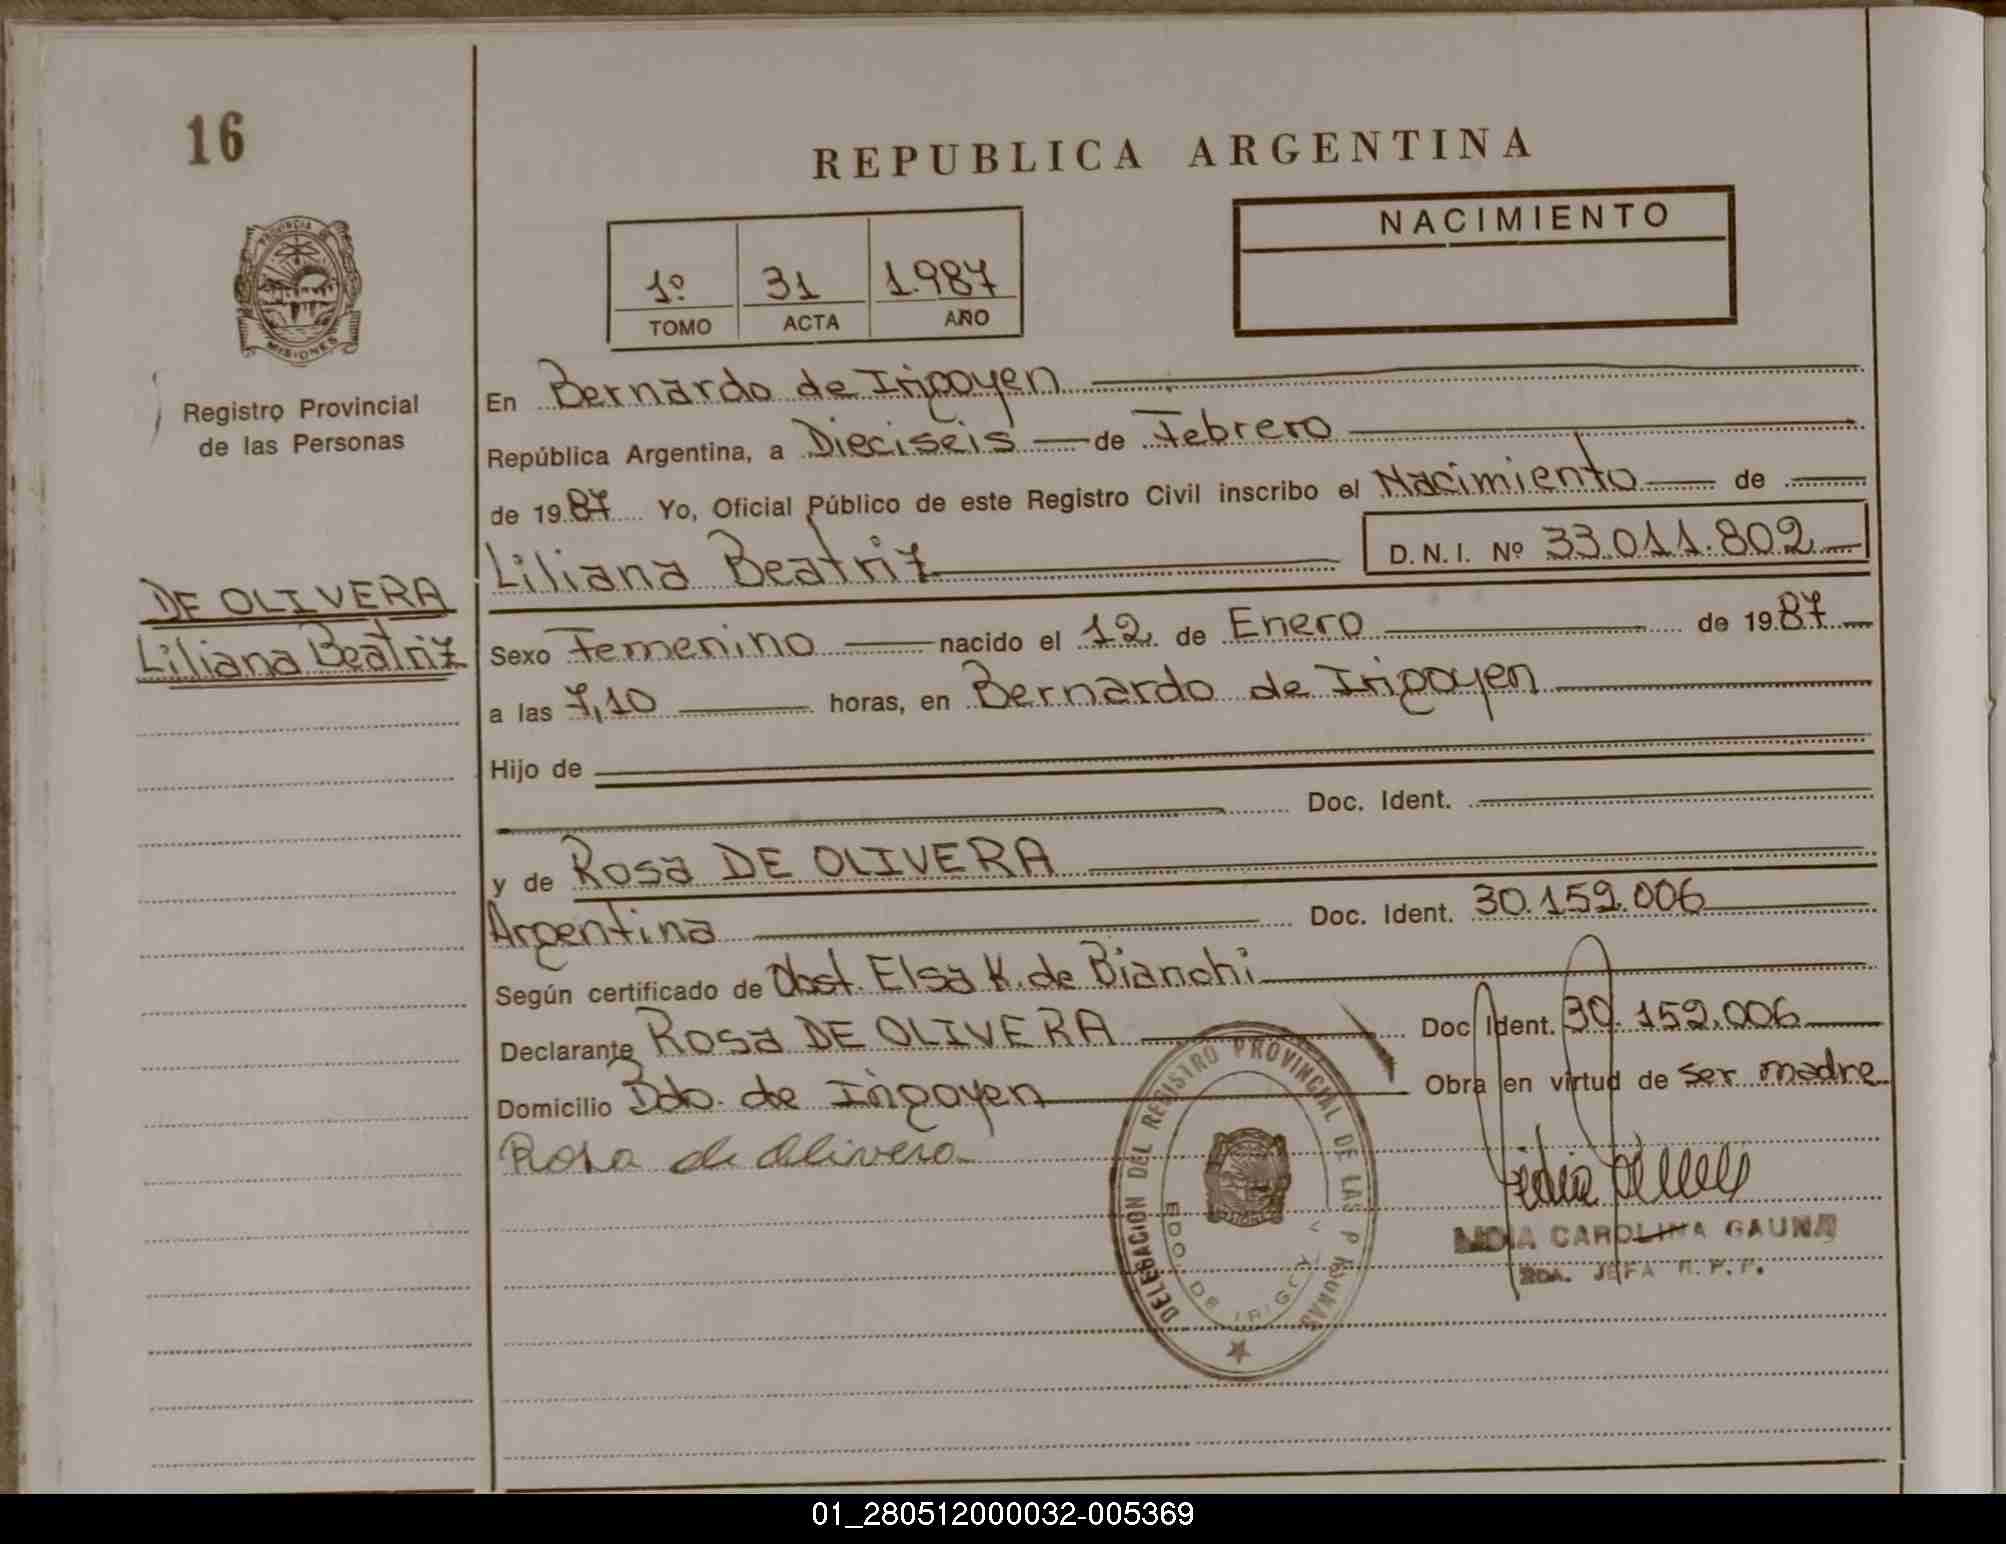 16
REPUBLICA ARGENTINA
NACIMIENTO
1º 31 1.987
TOMO ACTA AÑO
PROVINCIA DE
MISIONES
Registro Provincial
de las Personas
DE OLIVERA
Liliana Beatriz
En Bernardo de Irigoyen
República Argentina, a Dieciseis de Febrero
de 1987 Yo, Oficial Público de este Registro Civil inscribo el Nacimiento de
Liliana Beatriz D.N.I. Nº 33.011.802
Sexo Femenino nacido el 12 de Enero de 1987
a las 7,10 horas, en Bernardo de Irigoyen
Hijo de
Doc. Ident.
y de Rosa DE OLIVERA
Argentina Doc. Ident. 30.159.006
Según certificado de Obst. Elsa K. de Bianchi
Declarante Rosa DE OLIVERA Doc Ident. 30.159.006
Domicilio Bdo. de Irigoyen Obra en virtud de ser madre
Rosa de Olivera
DELEGACION DEL REGISTRO PROVINCIAL DE LAS P RSONAS
BDO. DE IRIGOY
Lidia
LIDIA CAROLINA GAUNA
2DA. JEFA R.P.P.
01_280512000032-005369